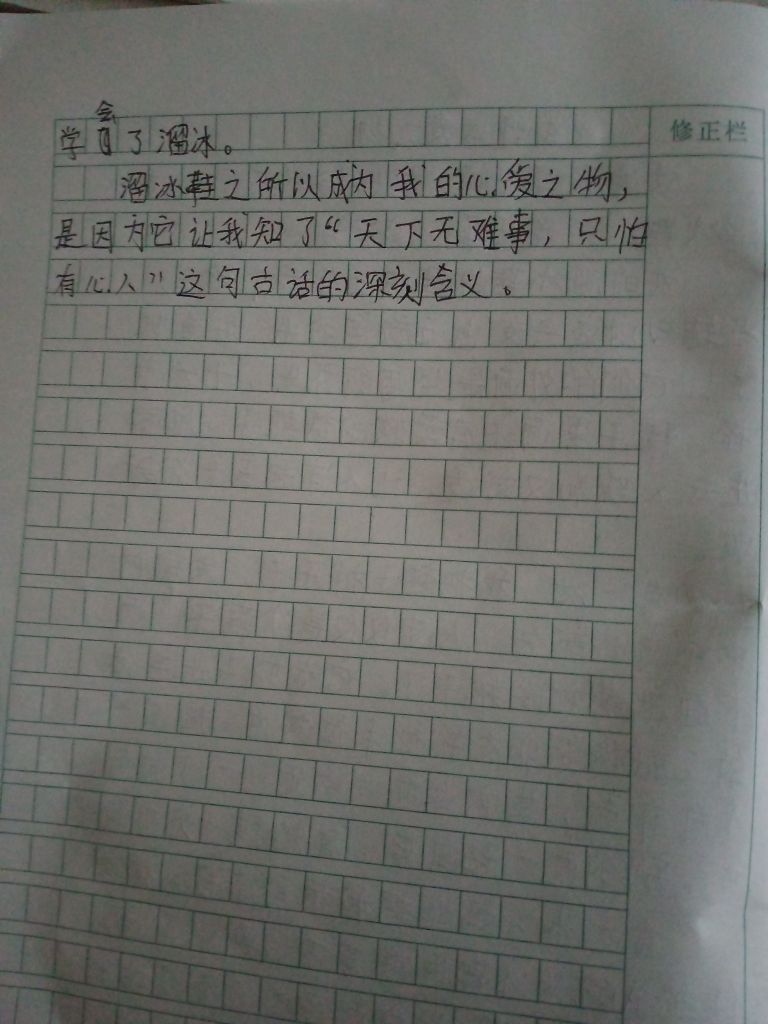 学会了溜冰。
修正栏
溜冰鞋之所以成为我的心爱之物，
是因为它让我知了“天下无难事，只怕
有心人”这句古话的深刻含义。